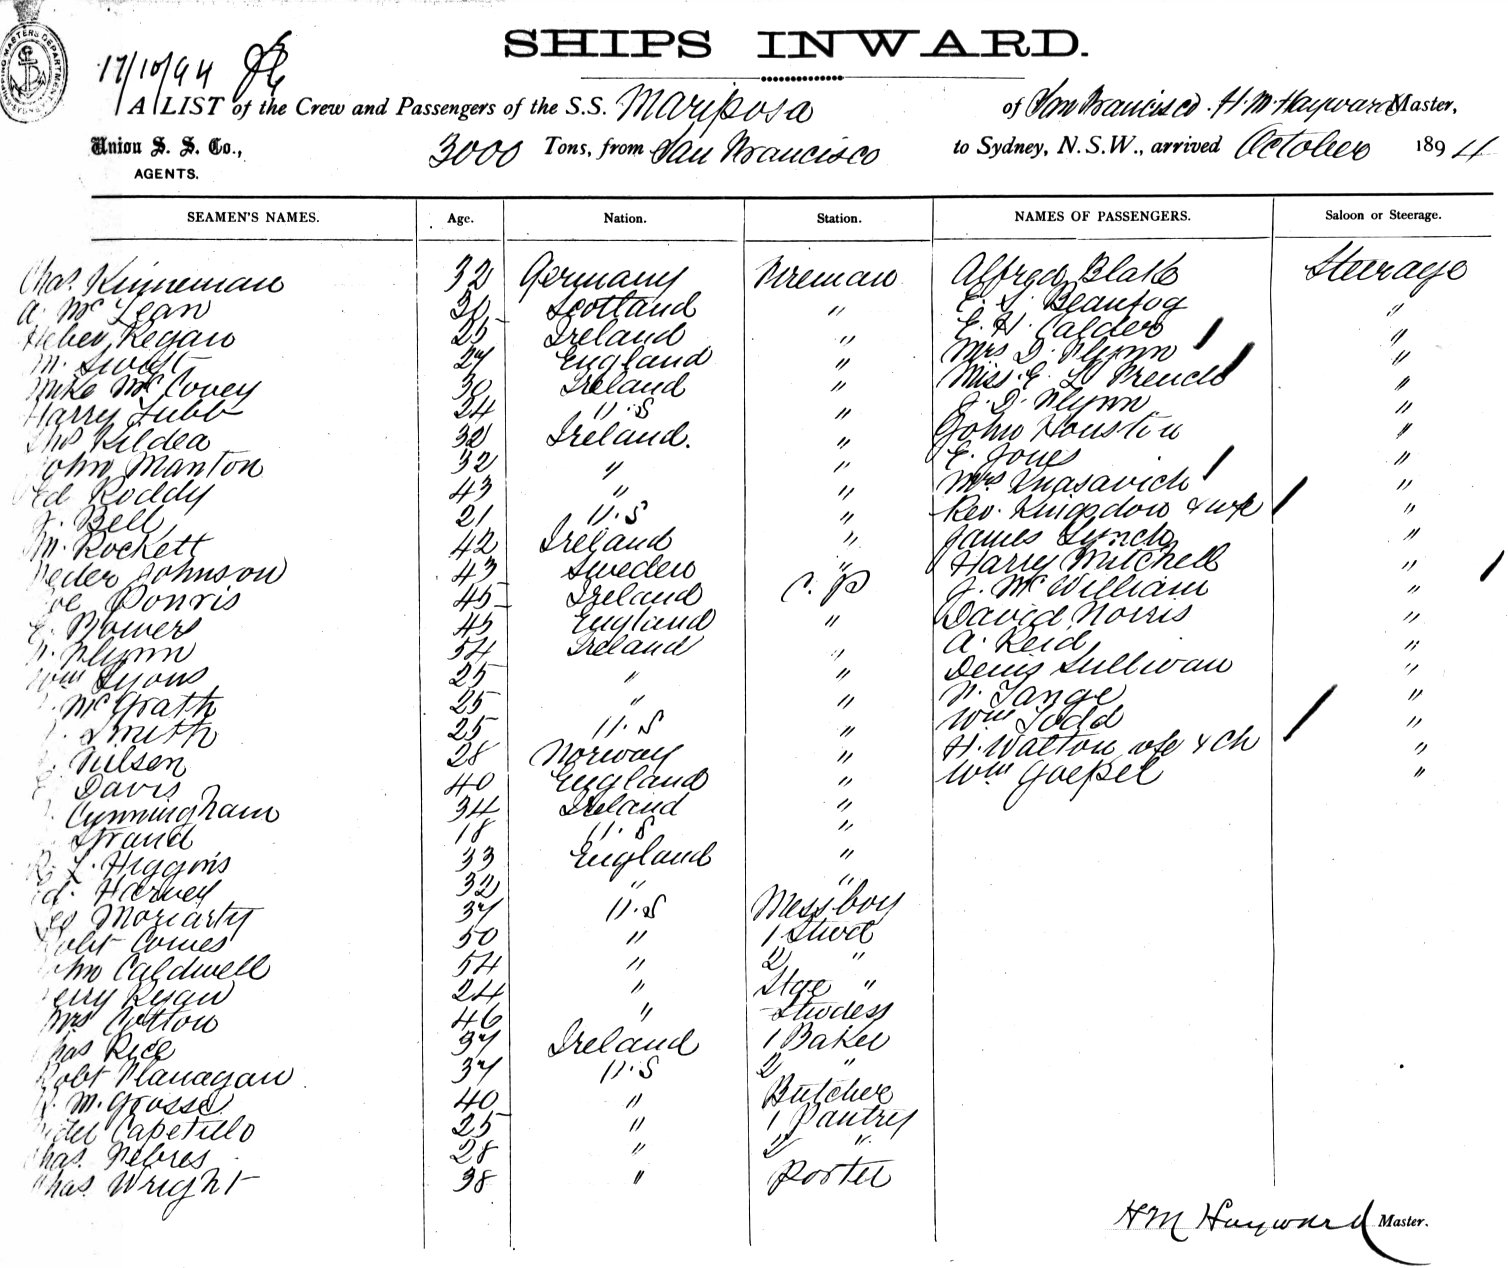 SHIPS INWARD.
17/10/94
A LIST of the Crew and Passengers of the S.S. Mariposa of San Francisco. H. M. Hayward Master,
Union S. S. Co., 3000 Tons, from San Francisco to Sydney, N.S.W., arrived October 1894
AGENTS.
SEAMEN'S NAMES. Age. Nation. Station. NAMES OF PASSENGERS. Saloon or Steerage.
Chas. Kinneman 32 Germany Fireman Alfred Blake Steerage
A. McLean 30 Scotland " E. S. Beaufog "
Regan 25 Ireland " E. H. Calder "
M. Swift 27 England " Mrs D. Flynn "
Mike McCovey 30 Ireland " Miss. E. L. French "
Harry Tubb 24 U.S " J. D. Flynn "
Thos Kildea 32 Ireland. " John Houston "
John Manton 32 " " E. Jones "
Ed Roddy 43 " " Mrs Knasavich "
J. Bell 21 U.S " Rev. Kingdon & wfe "
M. Rockett 42 Ireland " James Lynch "
Peder Johnson 43 Sweden " Harry Mitchell "
Joe Ponris 45 Ireland C. P J. McWilliam "
E. Bowers 45 England " David Norris "
Flynn 54 Ireland " A. Reid "
Wm Lyons 25 " " Denis Sullivan "
McGrath 25 " " F. Tange "
Smith 25 U.S " Wm Todd "
Nilsen 28 Norway " H. Walton wfe & Ch "
Davis 40 England " Wm Goepel "
Cunningham 34 Ireland "
Strand 18 U.S "
R. L. Higgins 33 England "
Ed. Harney 32 " "
Moriarty 37 U.S Messboy
Robt Comes 50 " 1 Stwd
John Caldwell 54 " 2 "
Jerry Ryan 24 " Stge "
Mrs Cotton 46 " Stwdess
Chas Rice 37 Ireland 1 Baker
Robt Flanagan 37 U.S 2 "
M. Grosse 40 " Butcher
Fidel Capetillo 25 " 1 Pantry
Chas. Febres 28 " 2 "
Chas. Wright 38 " Porter
H M Hayward Master.